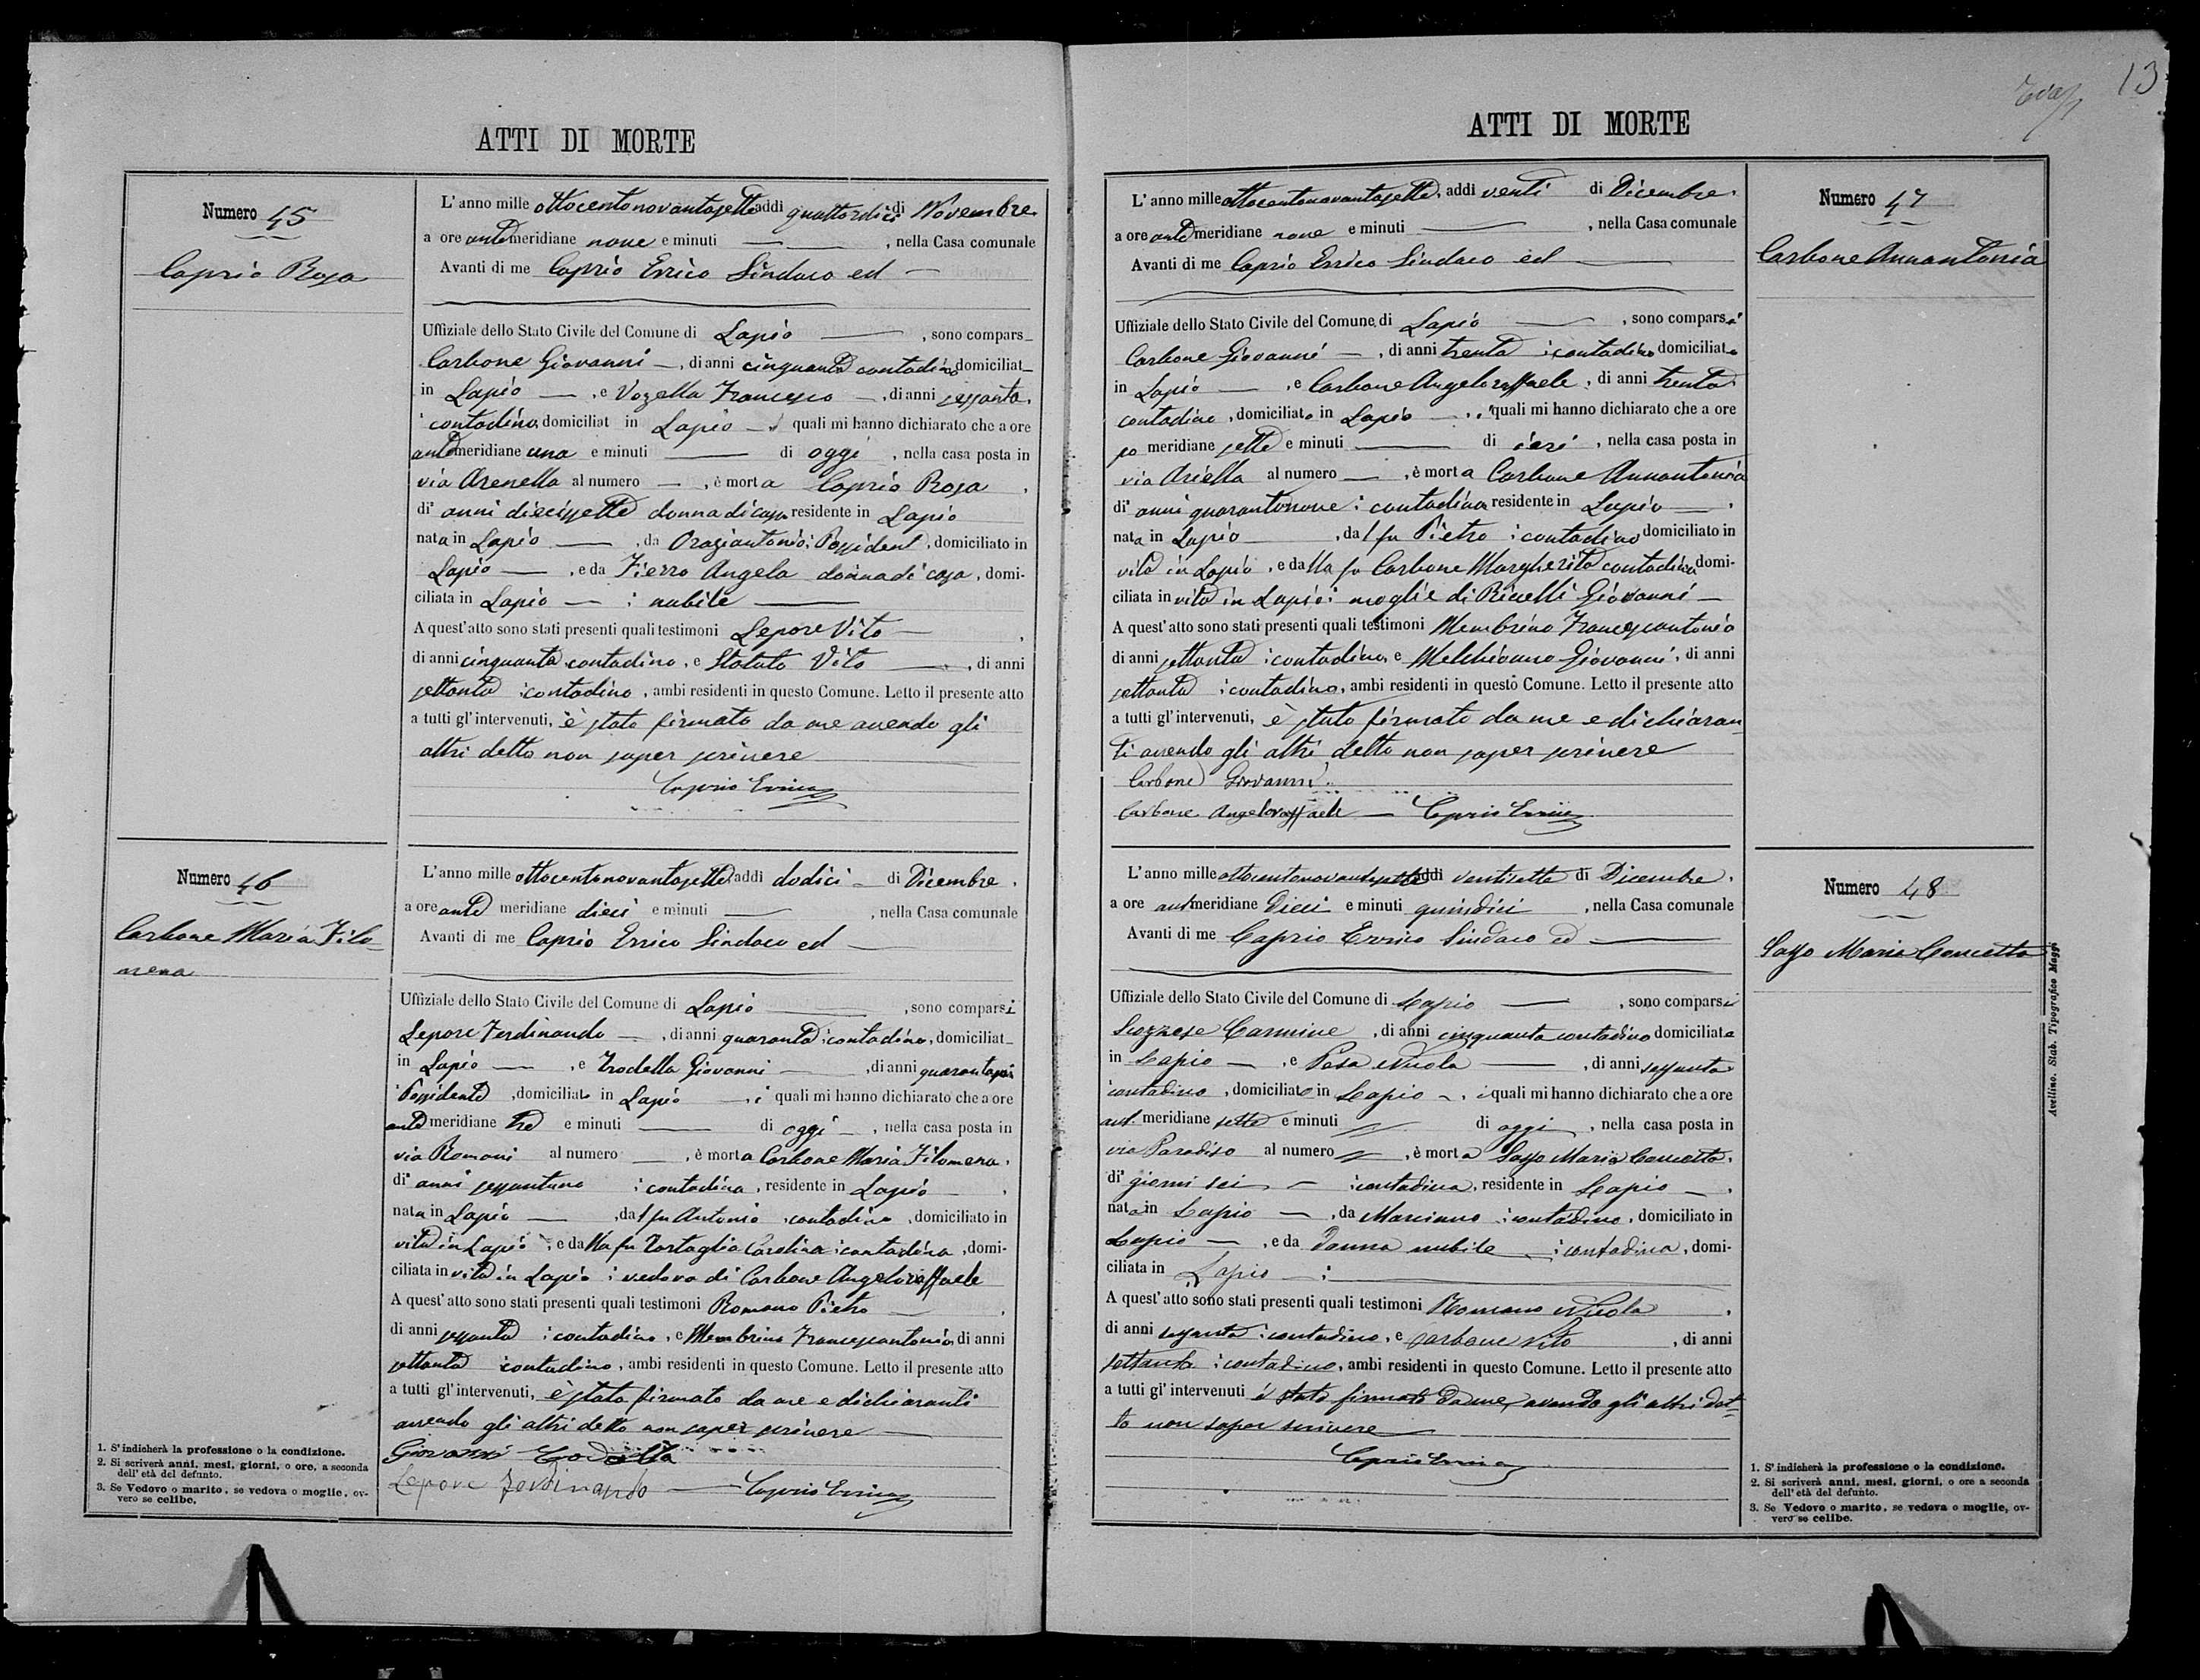 ATTI DI MORTE
Numero 45
Caprio Rosa
L'anno mille ottocentonovantasette addì quattordici di Novembre
a ore antemeridiane nove e minuti — , nella Casa comunale
Avanti di me Caprio Errico Sindaco ed —
Uffiziale dello Stato Civile del Comune di Lapio — , sono compars_
Carbone Giovanni — , di anni cinquanta contadino domiciliat_
in Lapio — , e Vozella Francesco — , di anni sessanta,
contadino, domiciliat in Lapio — i quali mi hanno dichiarato che a ore
antemeridiane una e minuti — di oggi , nella casa posta in
via Arenella al numero — , è morta Caprio Rosa ,
di anni diecissette donna di casa residente in Lapio
nata in Lapio — , da Oraziantonio: Possident , domiciliato in
Lapio — , e da Fierro Angela donna di casa , domi-
ciliata in Lapio — ; nubile —
A quest'atto sono stati presenti quali testimoni Lepore Vito — ,
di anni cinquanta contadino, e Statuto Vito — , di anni
settanta : contadino , ambi residenti in questo Comune. Letto il presente atto
a tutti gl'intervenuti, è stato firmato da me avendo gli
altri detto non saper scrivere
Caprio Errico
Numero 46
Carbone Maria Filo-
mena
L'anno mille ottocentonovantasette addì dodici — di Dicembre ,
a ore ante meridiane dieci e minuti — , nella Casa comunale
Avanti di me Caprio Errico Sindaco ed —
Uffiziale dello Stato Civile del Comune di Lapio — , sono comparsi
Lepore Ferdinando — , di anni quaranta : contadino, domiciliat_
in Lapio — , e Trodella Giovanni — , di anni quarantasei
: Possidente , domiciliato in Lapio — , i quali mi hanno dichiarato che a ore
ante meridiane tre e minuti — di oggi — , nella casa posta in
via Romani al numero — , è morta Carbone Maria Filomena,
di anni sessantuno : contadina , residente in Lapio — ,
nata in Lapio — , dal fu Antonio , contadino , domiciliato in
vita in Lapio , e dalla fu Tortaglia Carolina : contadina , domi-
ciliata in vita in Lapio ; vedova di Carbone Angeloraffaele
A quest'atto sono stati presenti quali testimoni Romano Pietro — ,
di anni sessanta : contadino , e Membrino Francescantonio, di anni
settanta contadino , ambi residenti in questo Comune. Letto il presente atto
a tutti gl'intervenuti, è stato firmato da me e dichiaranti
avendo gli altri detto non saper scrivere —
Giovanni
Lepore Ferdinando — Caprio Errico
1. S'indicherà la professione o la condizione.
2. Si scriverà anni, mesi, giorni, o ore, a seconda
dell'età del defunto.
3. Se Vedovo o marito, se vedova o moglie, ov-
vero se celibe.
13
ATTI DI MORTE
L'anno mille ottocentonovantasette, addì venti di Dicembre,
a ore antemeridiane nove e minuti — , nella Casa comunale
Avanti di me Caprio Errico Sindaco ed —
Uffiziale dello Stato Civile del Comune di Lapio — , sono comparsi
Carbone Giovanni — , di anni trenta : contadino domiciliato
in Lapio — , e Carbone Angeloraffaele , di anni trenta
contadino , domiciliato in Lapio — , i quali mi hanno dichiarato che a ore
po meridiane sette e minuti — di ieri , nella casa posta in
via Ariella al numero — , è morta Carbone Annantonia
di anni quarantanove : contadina residente in Lapio — ,
nata in Lapio , dal fu Pietro : contadino domiciliato in
vita in Lapio , e dalla fu Carbone Margherita contadina domi-
ciliata in vita in Lapio ; moglie di Ricelli Giovanni —
A quest'atto sono stati presenti quali testimoni Membrino Francescantonio
di anni settanta : contadino, e Melchionno Giovanni , di anni
settanta : contadino, ambi residenti in questo Comune. Letto il presente atto
a tutti gl'intervenuti, è stato firmato da me e dichiaran
ti avendo gli altri detto non saper scrivere
Carbone Giovanni
Carbone Angeloraffaele — Caprio Errico
Numero 47
Carbone Annantonia
L'anno mille ottocentonovantasette addì ventisette di Dicembre,
a ore antmeridiane dieci e minuti quindici , nella Casa comunale
Avanti di me Caprio Errico Sindaco ed —
Uffiziale dello Stato Civile del Comune di Lapio — , sono comparsi
Scozzese Carmine , di anni cinquanta contadino domiciliato
in Lapio — , e Pasa Nicola — , di anni sessanta
contadino , domiciliato in Lapio — , i quali mi hanno dichiarato che a ore
ant. meridiane sette e minuti // di oggi , nella casa posta in
via Paradiso al numero // , è morta Sasso Maria Concetta,
di giorni sei — : contadina, residente in Lapio — ,
nata in Lapio — , da Marciano : contadino, domiciliato in
Lapio — , e da donna nubile — : contadina, domi-
ciliata in Lapio — ; —
A quest'atto sono stati presenti quali testimoni Romano Nicola ,
di anni sessanta : contadino, e Carbone Vito , di anni
settanta : contadino, ambi residenti in questo Comune. Letto il presente atto
a tutti gl'intervenuti è stato firmato da me, avendo gli altri det-
to non saper scrivere
Caprio Errico
Numero 48
Sasso Maria Concetta
Avellino. Stab. Tipografico Maggi
1. S'indicherà la professione o la condizione.
2. Si scriverà anni, mesi, giorni, o ore a seconda
dell'età del defunto.
3. Se Vedovo o marito, se vedova o moglie, ov-
vero se celibe.